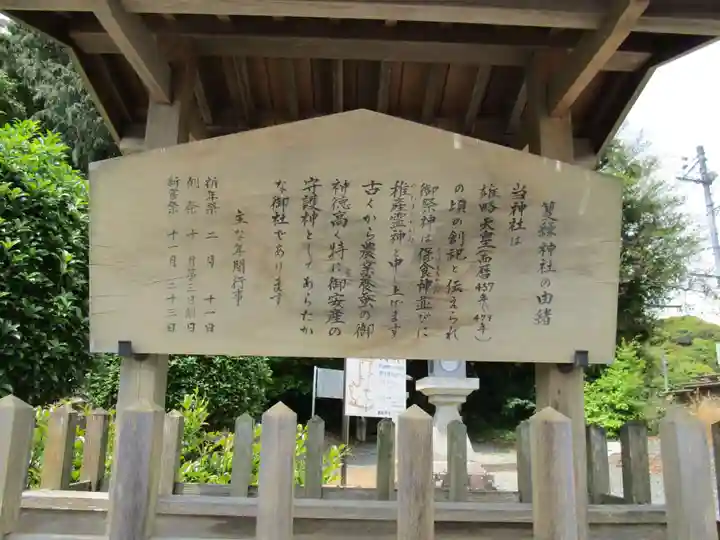 蓑緑神社の由緒
当神社は
雄略天皇(西暦457年〜479年)
の頃の創祀と伝えられ
御祭神は保食神並びに
稚産霊神と申し上げます
古くから農業養蚕の御
神徳高く特に御安産の
守護神としてあらたか
な御社であります
主な年間行事
祈年祭 二月 十一日
例祭 十月第三日曜日
新嘗祭 十一月二十三日